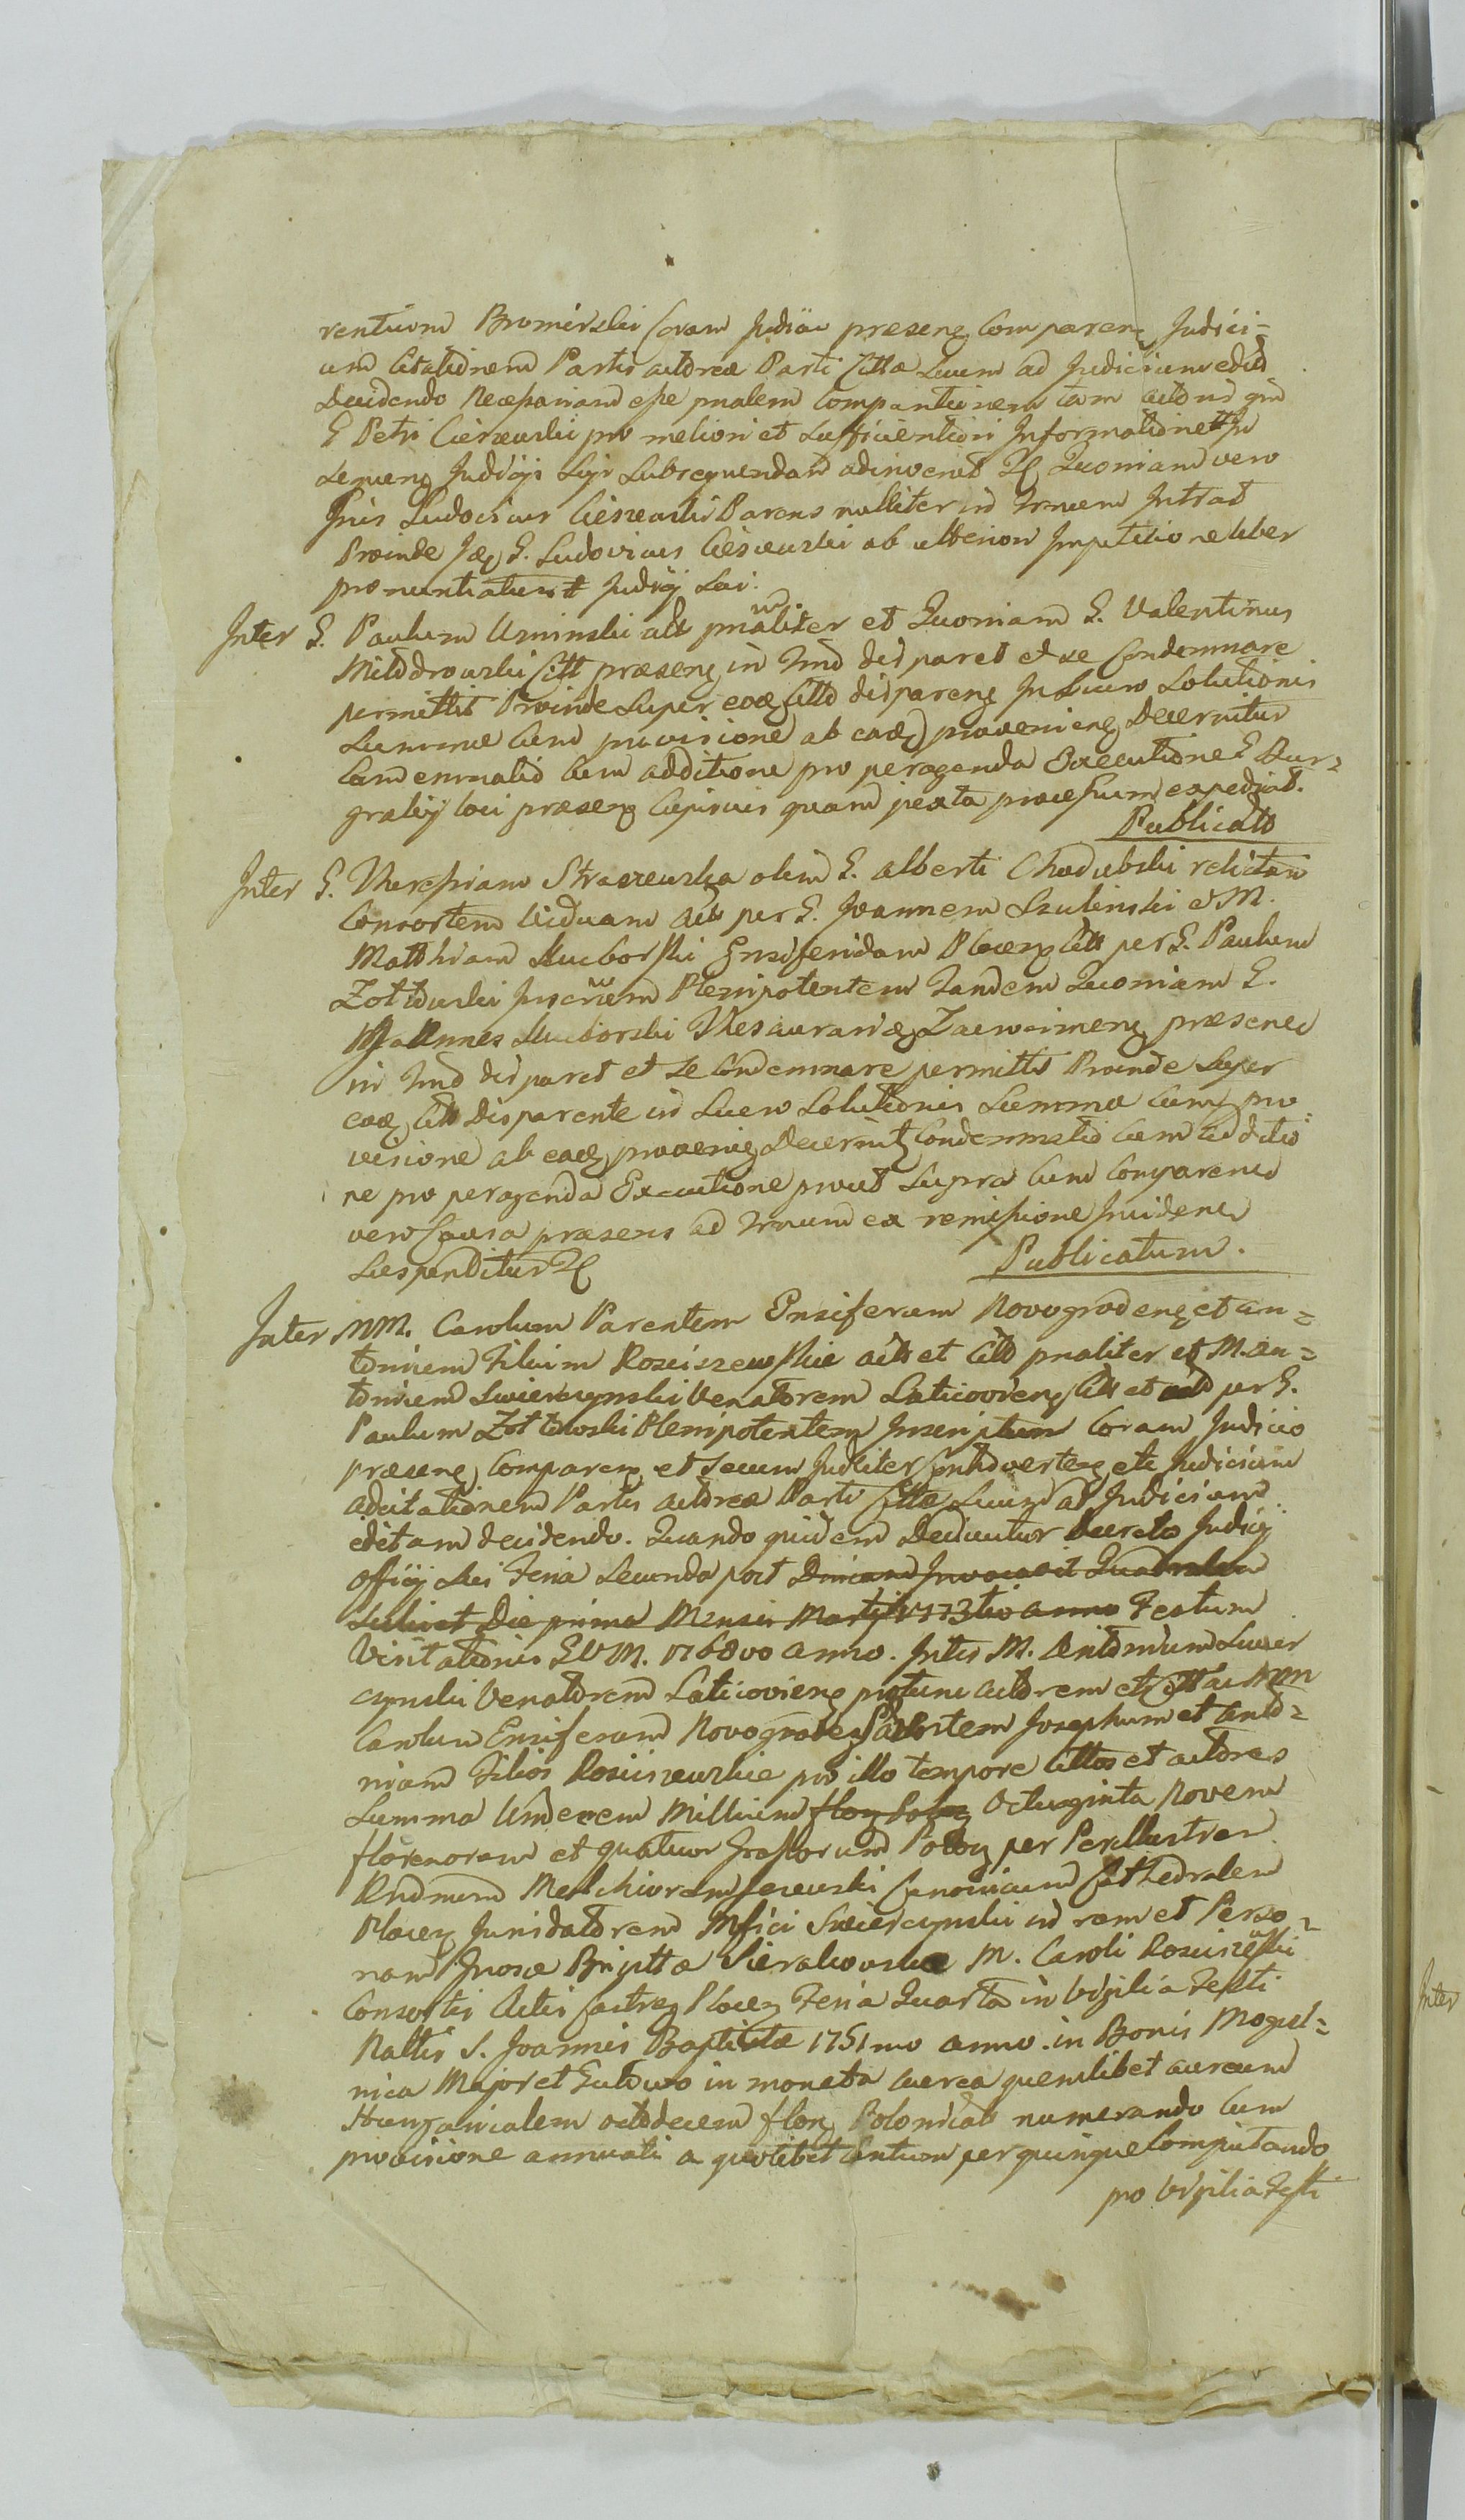 rentium Bromirski Coram Judicio præseng Comparen Judici=
um Citationem Partis actoreæ Parti Cittæ Suum ad Judicium edit
Decidendo Necessariam esse pnalem Compantionem tam actoris qm
G Petri Cieszewski pro meliori et Sufficientiori Informatione
Judicÿ Sui Subsequendam adinvenit Quoniam vero
Ludovicus Cieszewski Parens nulliter in Trnum Intrat
Proinde G. Ludovicus Cieszewski ab ulteriori Impetitione liber
pronuntiatur Judicÿ Sui.
Inter G. Paulum Uminski act pnaliter et Quoniam G. Valentinus
Milodrowski Citt præseng in Tmo disparet et se Condemnare
permittit Proinde Super eoq Citto dispareng In Lucro Solutionis
Summæ Cum provisione ab eadq proveniene Decernitur
Condemnatio Cum additione pro peragenda Executione G Bur=
grabÿ loci præseng Cujusvis quam juxta processum expediat.
Publicato
Inter G. Theresiam Straszewska olim G. alberti Chadubski relictam
Consortem Viduam act per G. Joannem Szulinski et M.
Matthiam Suchorski Ensiferidam Ploceng Citt per G. Paulum
Zoltowski Plenipotentem Tandem Quoniam G.
Joannes Suchorski Thesauraridæ Zawcrineng præsenei
in Tmo disparet et se Condemnare permittit Proinde Super
eoq Citt disparente in Lucro Solutionis Summæ Cum pro
visione ab eadq provenieg Decernitq Condemnatio Cum additio
ne pro peragenda Executione prout Supra Cum Comparenei
vero Causa præsens ad Trnum ex remissione Incidenei
Suspenditur
Publicatum.
Inter MM. Carolum Parentem Ensiferum Novogrodeng et an=
tonium Filium Rosciszewskie act et Citto pnaliter et M. an=
tonium Swierczynski Venatorem Laticovieng Citt et act per G.
Paulum Zoltowski Plenipotentem Inscriptum Coram Judicio
præseng Compareng et Secum Juditer Controverteng etc Judicium
ad citationem Partis actoreæ Parti Cittæ Suum ad Judicium
editam decidendo. Quando quidem Deducitur Decreto Judicÿ
Officÿ Sui Feria Secunda post Dnicam Invocavit Quadralem
Scilicet Die prima Mensis Martÿ 1773tio anno Festum
Visitationis BVM. 1768vo anno. Inter M. Antonium Swier
czynski Venatorem Laticovieng protunc actorem et Citt ac MM
Carolum Ensiferum Novogrodeng Patrem Josephum et anto=
nium Filios Rosciszewskie pro illo tempore Cittos et actores
Summa Undecem Millium florg Polog Octuaginta Novem
florenorum et quatuor Grossorum Polog per Perillustrem
Rndmum Melchiorem Canonicum Cathedralem
Ploceng Juridatorem Mfici Swierczynski in rem et Perso=
nam Gnosæ Brigittæ Sierakowskæ M. Caroli Rosciszewski
Consortis Actis Castreg Ploceng Feria Quarta in Vigilia Festi
Nattis S. Joannis Baptistæ 1751mo anno. in Bonis Mogiel=
nica Major et Gulowo in moneta aurea quemlibet aureum
Hungaricalem octodecem florg Polonicali numerando Cum
provisione annuali a quolibet Centum per quinque Computando
pro Vigilia Festi
Inter